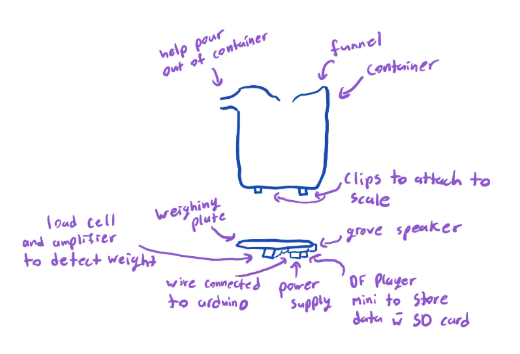 help pour
out of container
funnel
container
clips to attach to
scale
weighing
plate
load cell
and amplifier
to detect weight
grove speaker
wire connected
to arduino
power
supply
DF Player
mini to store
data w̄ SD card